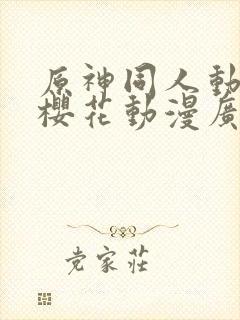 原神同人動
櫻花動漫廣
党家莊